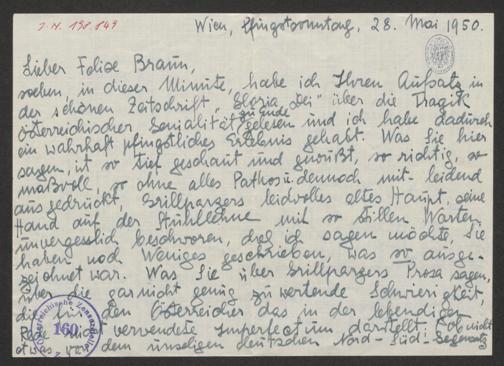 J. N. 198.849
Wien, Pfingstsonntag, 28. Mai 1950.
Lieber Felix Braun,
soeben, in dieser Minute, habe ich Ihren Aufsatz in
der schönen Zeitschrift, "Gloria Dei" über die Tragik
österreichischer Genialität zu Ende gelesen und ich habe dadurch
ein wahrhaft pfingstliches Erlebnis gehabt. Was Sie hier
sagen, ist so tief geschaut und gewußt, so richtig, so
maßvoll, so ohne alles Pathos u. dennoch mit-leidend
ausgedrückt, Grillparzers leidvolles altes Haupt, seine
Hand auf der Stuhllehne mit so stillen Worten
unvergesslich beschworen, daß ich sagen möchte, Sie
haben noch Weniges geschrieben, was so ausge-
zeichnet war. Was Sie über Grillparzers Prosa sagen,
über die garnicht genug zu wertende Schwierigkeit
die für den Österreicher das in der lebendigen
Rede nie verwendete Imperfectum darstellt, (ob nicht
etwas von dem unseligen deutschen Nord-Süd-Gegensatz
160